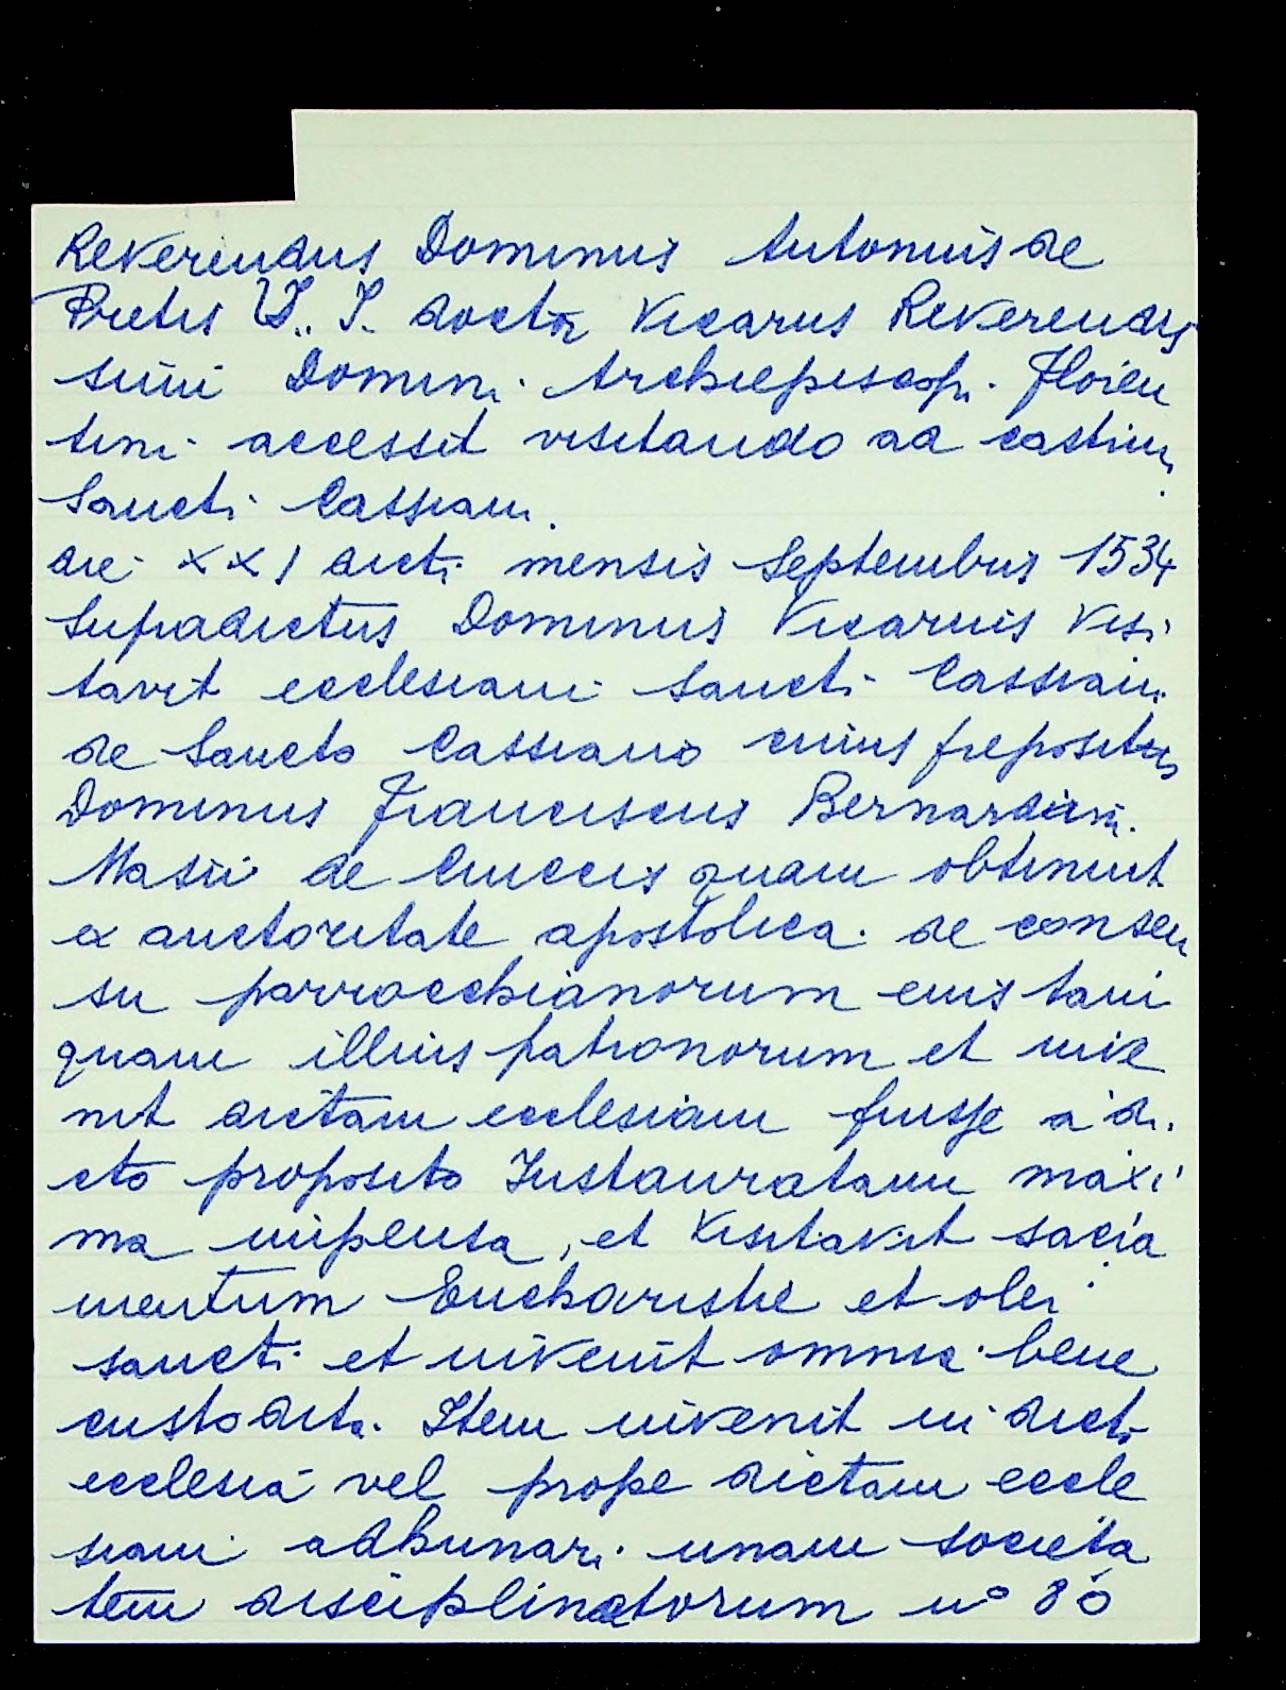 Reverendus Dominus Antonius de
Pretis U. J. doctor Vicarius Reverendis
simi Domini Archiepiscopi Floren
tini accessit visitando ad castrum
Sancti Cassiani.
die XXI dicti mensis Septembris 1534
Supradictus Dominus Vicarius Visi
tavit ecclesiam Sancti Cassiani
de Sancto Cassiano cuius prepositus
Dominus Franciscus Bernardini
Masii de quam obtinuit
ex auctoritate apostolica de consen
su parrocchianorum eius tam
quam illius patronorum et inve
nit dictam ecclesiam fuisse a di
cto proposito Instauratam maxi
ma impensa, et Visitavit sacra
mentum Eucharistie et olei
sancti et invenit omnia bene
custodita. Item invenit in dicta
ecclesia vel prope dictam eccle
siam adhunari unam societa
tem disciplinatorum nº 80